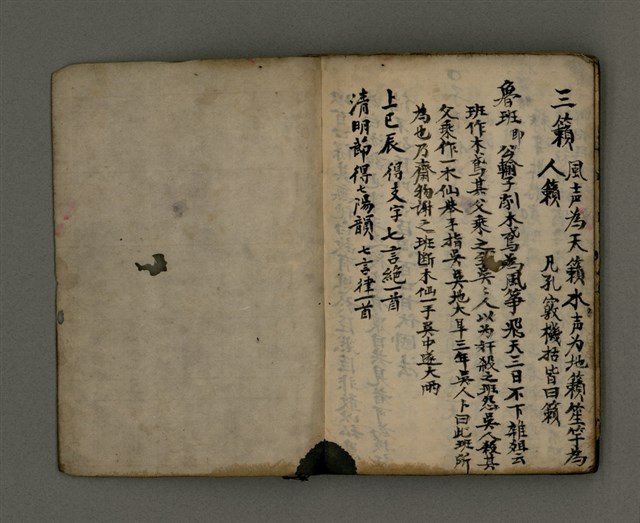 三籟 風声為天籟水声为地籟笙竽為
人籟 凡孔竅機括皆曰籟
魯班 即公輸子刻木鳶為風箏飛天三日不下雜俎云
班作木鳶其父乘之至吳吳人以为奸殺之班怨吳人殺其
父乘作一木仙举手指吳吳地大旱三年吳人卜曰此班所
為也乃齎物謝之班断木仙一手吳中遂大雨
上巳辰 得支字 七言絶一首
清明節得七陽韻 七言律一首